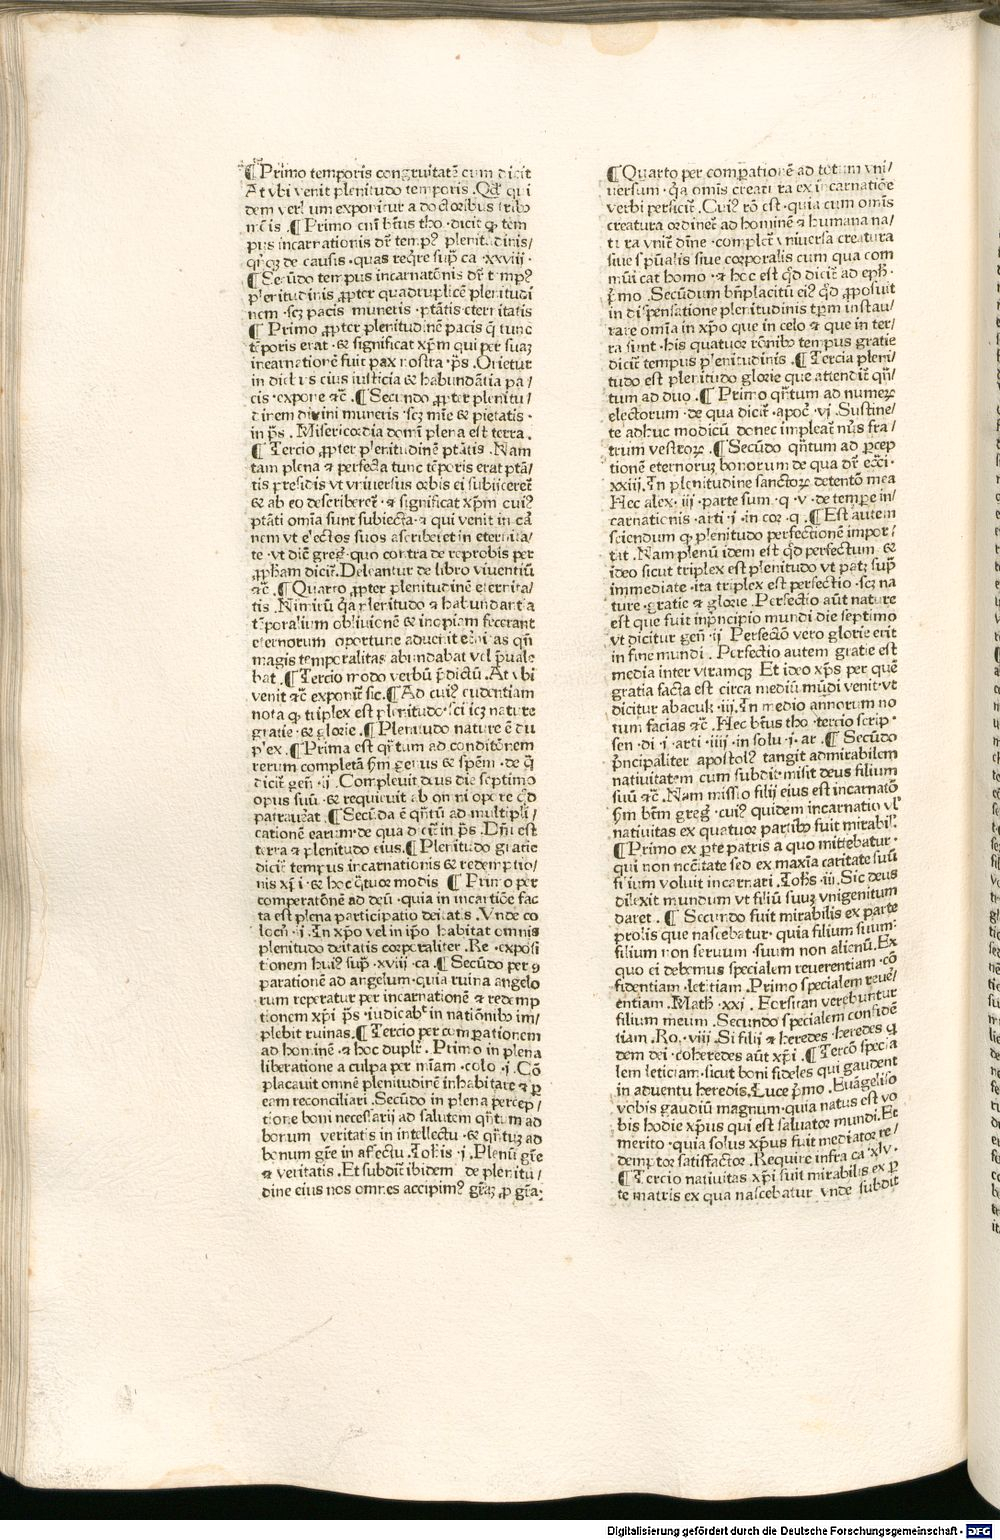 ¶Primo temporis congruitatē cum dicit
At vbi venit plenitudo temporis .Qd̄ qui
dem verbum exponitur a doctoribus tribꝰ
mōis .¶Primo cm̄ btūs tho·dicit ꝙ tem
pus incarnationis dr̄ tempꝰ plenitudinis/
qr̄ cqꝫ de causis·quas reqͥre supͣ ca·xxviij·
¶Secūdo tempus incarnatōnis dr̄ tempꝰ
plenitudinis ꝓpter quadruplicē plenitudi
nem·scꝫ pacis muneris·ptātis eternitatis
¶ Primo ꝓpter plenitudinē pacis q̄ tunc
tēporis erat·& significat xp̄m qui per suaꝫ
incarnationē fuit pax nostra·ps̄. Orietur
in diebus eius iusticia & habundātia pa/
cis·expone ⁊c̄.¶Secundo ꝓpter plenitu/
dinem diuini muneris·scꝫ mīe & pietatis·
in ps̄.Misericordia domī plena est terra.
¶Tercio ꝓpter plenitudinē ptātis.Nam
tam plena ⁊ perfecta tunc tēporis erat ptā/
tis presidis vt vniuersus orbis ei subijceret̄
& ab eo describeret̄·⁊ significat xp̄m cuiꝰ
ptāti omīa sunt subiecta·⁊ qui venit in cā
nem vt electos suos ascriberet in eternita/
te·vt dicit̄ greḡ·quo contra de reprobis per
ꝓpham dicit̄.Deleantur de libro viuentiū
⁊c̄.¶Quarto ꝓpter plenitudinē eternita/
tis.Nimirū qͣa plenitudo ⁊ habundantia
tēporalium obliuionē & inopiam fecerant
eternorum oportune aduenit eternitas qn̄
magis temporalitas abundabat vel p̄uale
bat.¶Tercio modo verbū p̄dictū.At vbi
venit ⁊c̄ exponit̄ sic.¶Ad cuiꝰ euidentiam
nota ꝙ triplex est plenitudo·scilicꝫ nature
gratie·& glorie.¶Plenitudo nature ē du
plex.¶Prima est qn̄tum ad conditōnem
rerum completā s̄m genus & spēm·de q̄
dicit̄ gen̄·ij.Compleuit deus die septimo
opus suū·& requieuit ab omni opere qd̄
patrauerat.¶Secūda ē qn̄tū ad multipli/
cationē earum·de qua dicit̄ in ps̄.Dn̄i est
terra & plenitudo eius.¶Plenitudo gratie
dicit̄ tempus incarnationis & redemptio/
nis xp̄i·& hoc qͣtuor modis ¶Primo per
comperatōnē ad deū·quia in incarnatiōe fac
ta est plena participatio deitatis.Vnde co
locū·i.In xp̄o vel in ip̄o habitat omnis
plenitudo deitatis corporaliter.Re·exposi
tionem huiꝰ supͣ·xviij·ca.¶Secūdo per ꝯ
parationē ad angelum·quia ruina angelo
rum reperatur per incarnationē ⁊ redemp
tionem xp̄i ps̄·iudicabͭ in natiōnibꝰ im/
plebit ruinas.¶Tercio per comparationem
ad hominē·⁊ hoc dupliꝭ.Primo in plena
liberatione a culpa per mīam·colo·i.Cō
placauit omnē plenitudinē inhabitare ⁊ ꝑ
eam reconciliari.Secūdo in plena percep/
tione boni necessarij ad salutem qn̄tum ad
bonum veritatis in intellectu·& qn̄tuꝫ ad
bonum grē in affectu.Iohīs·i.Plenū grē
⁊ veritatis.Et subdit̄ ibidem de plenitu/
dine eius nos omnes accipimꝰ grāꝫ ꝓ grā·
¶Quarto per comperationē ad totum vni/
uersum·qͣa omīs creatura ex incarnatiōe
verbi perficit̄.Cuiꝰ rō est·quia cum omīs
creatura ordinet̄ ad hominē & humana na/
tura vnit̄ diuine·complet̄ vniuersa creatura
siue spūalis siue corporalis cum qua com
mūicat homo·⁊ hoc est qd̄ dicit̄ ad eph̄·
p̄mo.Secūdum bn̄placitū eiꝰ qd̄ ꝓposuit
in dispensatione plenitudinis tp̄rm instau/
rare omīa in xp̄o que in celo ⁊ que in ter/
ra sunt·his quatuor rōnibꝰ tempus gratie
dicit̄ tempus plenitudinis.¶Tercia pleni/
tudo est plenitudo glorie que attendit̄ qn̄/
tum ad duo.¶Primo qn̄tum ad numerꝝ
electorum·de qua dicit̄·apoc̄·vj.Sustine/
te adhuc modicū donec impleat̄ nūs fra/
trum vestrorꝝ.¶Secūdo qn̄tum ad ꝑcep
tionē eternoruꝫ bonorum de qua dr̄ ecci·
xxiij.In plenitudine sanctorꝝ detentō mea
Hec alex·iij·parte sum·q·v·de tempore in/
carnationis·arti·i·in cor·q.¶Est autem
sciendum ꝙ plenitudo perfectionē impor/
tat.Nam plenū idem est qd̄ perfectum·&
ideo sicut triplex est plenitudo vt patꝫ supͣ
immediate·ita triplex est perfectio·scꝫ na
ture·gratie & glorie.Perfectio aūt nature
est que fuit inp̄ncipio mundi die septimo
vt dicitur gen̄·ij Perfectō vero glorie erit
in fine mundi.Perfectio autem gratie est
media inter vtramqꝫ Et ideo xp̄s per quē
gratia facta est circa mediū mūdi venit·vt
dicitur abacuk·iij.In medio annorum no
tum facias ⁊c̄.Hec btūs tho·tercio scrip·
sen·di·i·arti·iiij·in solu·i·ar.¶Secūdo
p̄ncipaliter apostolꝰ tangit admirabilem
natiuitatem cum subdit·misit deus filium
suū ⁊c̄.Nam missio filij eius est incarnatō
s̄m btm̄ greḡ·cuiꝰ quidem incarnatio vl̓
natiuitas ex quatuor partibꝰ fuit mirabil̓.
¶Primo ex ꝑte patris a quo mittebatur·
qui non nccitate sed ex maxīa caritate suū
filium voluit incarnari.Iohīs·iij.Sic deus
dilexit mundum vt filiū suuꝫ vnigenitum
daret.¶ Secundo fuit mirabilis ex parte
prolis que nascebatur·quia filium suum·
filium non seruum·suum non alienū.Ex
quo ei debemus specialem reuerentiam·cō
fidentiam·letitiam.Primo specialem reue/
rentiam.Math̄·xxi.Forsitan verebuntur
filium meum.Secundo specialem confidē
tiam.Ro.·viij.Si filij ⁊ heredes·heredes q
dem dei·coheredes aūt xp̄i.¶Tercō specia
lem leticiam·sicut boni fideles qui gaudent
in aduentu heredis.Luce p̄mo.Euāgeliso
vobis gaudiū magnum·quia natus est vo
bis hodie xp̄us qui est saluator mundi.Et
merito·quia solus xp̄us fuit mediator re/
demptor satisfactor.Require infra ca·xlv·
¶Tercio natiuitas xp̄i fuit mirabilis ex ꝑ
te matris ex qua nascebatur vnde subdit
Digitalisierung gefördert durch die Deutsche Forschungsgemeinschaft - DFG